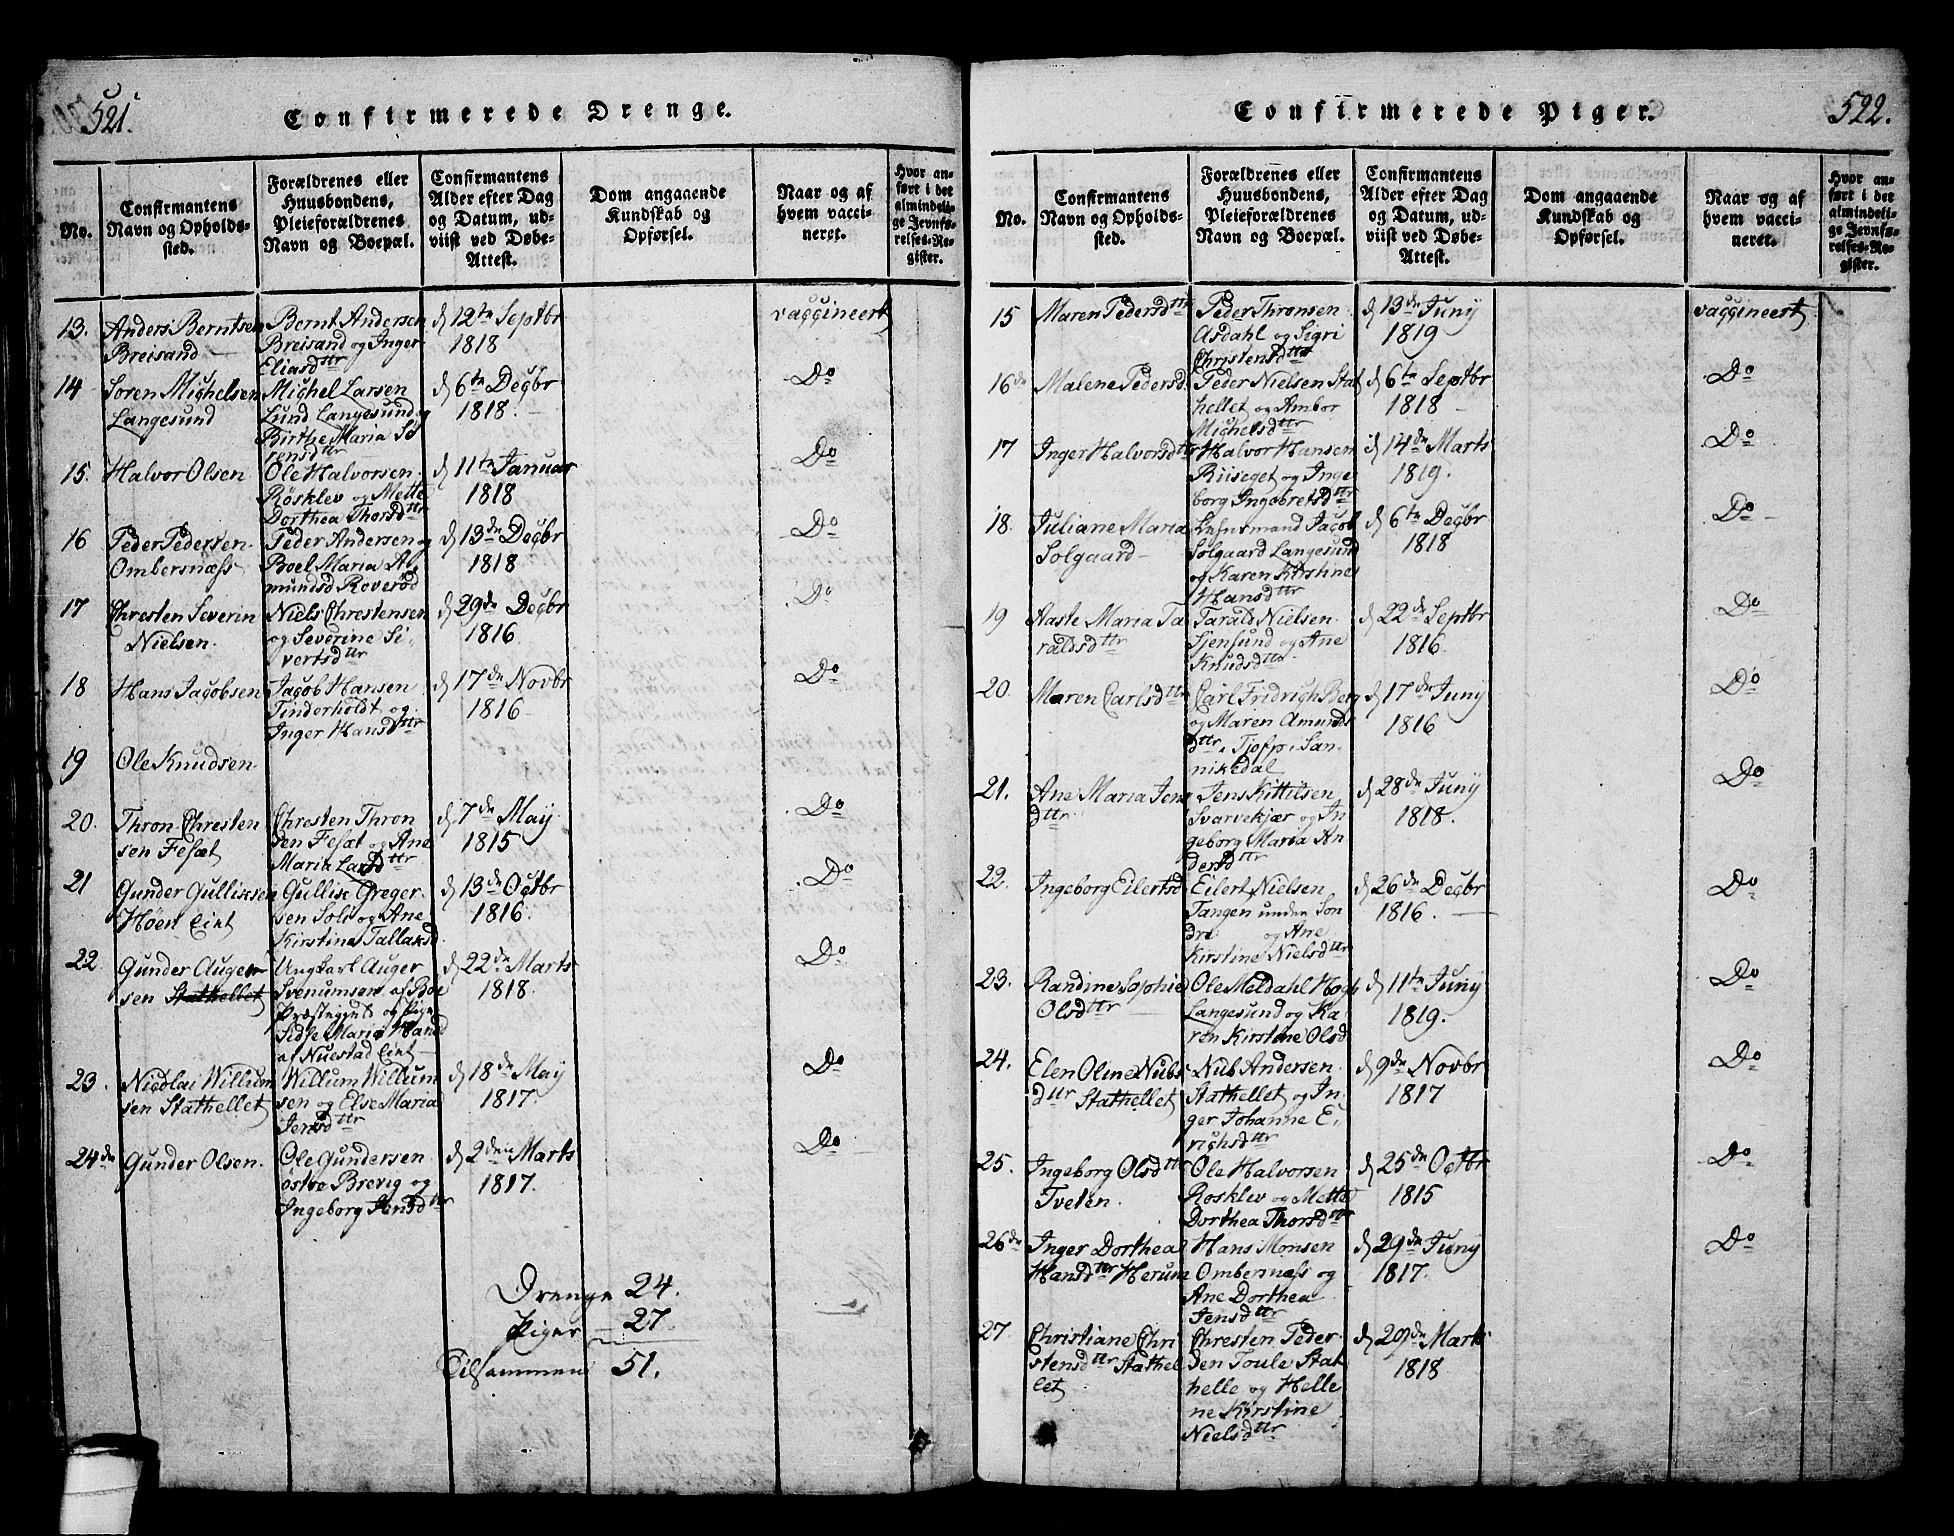 521.
Confirmerede Drenge.
No.
Confirmantens
Navn og Opholds-
sted.
Forældrenes eller
Huusbondens,
Pleieforældrenes
Navn og Boepæl.
Confirmantens
Alder efter Dag
og Datum, ud-
viist ved Døbe-
Attest.
Dom angaaende
Kundskab og
Opførsel.
Naar og af
hvem vacci-
neret.
Hvor an-
ført i det
almindeli-
ge Jevnfø-
relses-Re-
gister.
13.
Anders Berntsen
Breisand
Bernt Andersen
Breisand og Inger
Eliasdttr
d 12te Septbr
1818
vaccineert
14
Soren Michelsen
Langesund
Michel Larsen
Lund Langesund og
Birthe Maria Sø
rensdttr
d 6te Decbr
1818.
Do
15.
Halvor Olsen
Ole Halvorsen
Røsklev og Mette
Dorthea Thorsdttr
d 11te Januar
1818
Do
16
Peder Pedersen
Ombersnæss
Peder Andersen og
Boel Maria A
mundsd Roverød
d 13de Decbr
1818
Do
17
Chresten Severin
Nielsen.
Niels Chrestensen
og Severine Si-
vertsdttr
d 29de Decbr
1816.
Do
18
Hans Jacobsen
Jacob Hansen
Tinderholdt og
Inger Hansdttr
d 17de Novbr
1816
Do
19
Ole Knudsen
20.
Thron Chresten
sen Fesæt
Chresten Thron
sen Fesæt og Ane
Maria Larsdttr
d 7de May
1815
Do
21
Gunder Gulliksen
Høen Eiet
Gullik Greger
sen Soli og Ane
Kirstine Tallaksd
d 13de Octbr
1816.
Do
22
Gunder Auger
sen Stathellet
Ungkarl Auger
Svenumsen af Bøe
Præstegjel og Pige
Sidse Maria Hansd
af Nuestad Eiet
d 22de Marts
1818.
Do
23.
Nicolai Willum
sen Stathellet
Willum Willum
sen og Else Maria
Jensdttr
d 18de May
1817.
Do
24de
Gunder Olsen.
Ole Gundersen
østre Brevig og
Ingeborg Jensdttr
d 2den Marts
1817.
Do
Drenge 24.
Piger 27
Tilsammen 51.
522.
Confirmerede Piger.
No.
Confirmantens
Navn og Opholds-
sted.
Forældrenes eller
Huusbondens,
Pleieforældrenes
Navn og Boepæl.
Confirmantens
Alder efter Dag
og Datum, ud-
viist ved Døbe-
Attest.
Dom angaaende
Kundskab og
Opførsel.
Naar og af
hvem vacci-
neret.
Hvor an-
ført i det
almindeli-
ge Jevnfø-
relses-Re-
gister.
15
Maren Pedersdttr
Peder Thronsen
Asdahl og Sigri
Christensdttr
d 13de Juny
1819
vaccineert
16de
Malene Pedersd.
Peder Nielsen Stat
hellet og Ambor
Michelsdttr
d 6te Septbr
1818
Do
17
Inger Halvorsdttr
Halvor Hansen
Riiseget og Inge
borg Ingebretsdttr
d 14de Marts
1819.
Do
18.
Juliane Maria
Solgaard
Jacob
Solgaard Langesund
og Karen Kirstine
Hansdttr
d 6te Decbr
1818
Do
19
Aaste Maria Ta
raldsdttr
Tarald Nielsen
Sjensund og Ane
Knudsdttr
d 22de Septbr
1816.
Do
20.
Maren Carlsdttr
Carl Fridrich Berg
og Maren Amunds
dttr, i San-
nikedal
d 17de Juny
1816
Do
21.
Ane Maria Jens
dttr
Jens Kittilsen
Svarvekjær og In
geborg Maria An
dersdttr
d 28de Juny
1818.
Do
22.
Ingeborg Eilertsd
Eilert Nielsen
Tangen under Son
dre og Ane
Kirstine Nielsdttr
d 26de Decbr
1816.
Do
23.
Randine Sophie
Olsdttr
Ole Meldahl Hogh
Langesund og Ka
ren Kirstine Olsd
d 11te Juny
1819.
Do
24.
Elen Oline Nubs
dttr Stathellet
Nub Andersen
Stathellet og In
ger Johanne E
richsdttr
d 9de Novbr
1817
Do
25.
Ingeborg Olsdttr
Tveten.
Ole Halvorsen
Rosklev og Mette
Dorthea Thorsdttr
d 25de Octbr
1815
Do
26de
Inger Dorthea
Hansdttr Herum
Hans Monsen
Ombersnæss og
Ane Dorthea
Jensdttr
d 29de Juny
1817.
Do
27.
Christiane Chri
stensdttr Stathel
let
Chresten Peder
sen Toule Stat
helle og Helle
ne Kirstine
Nielsdttr
d 29de Marts
1818